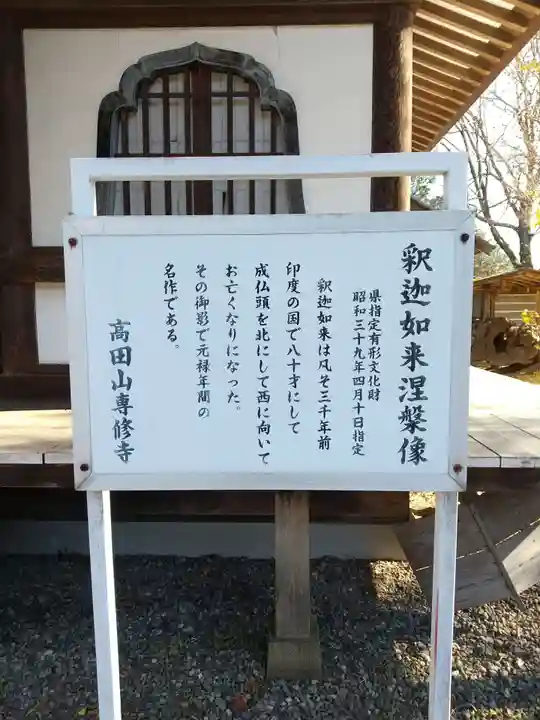 釈迦如来涅槃像
県指定有形文化財
昭和三十九年四月十日指定
釈迦如来は凡そ三千年前
印度の国で八十才にして
成仏頭を北にして西に向いて
お亡くなりになった。
その御影で元禄年間の
名作である。
高田山専修寺